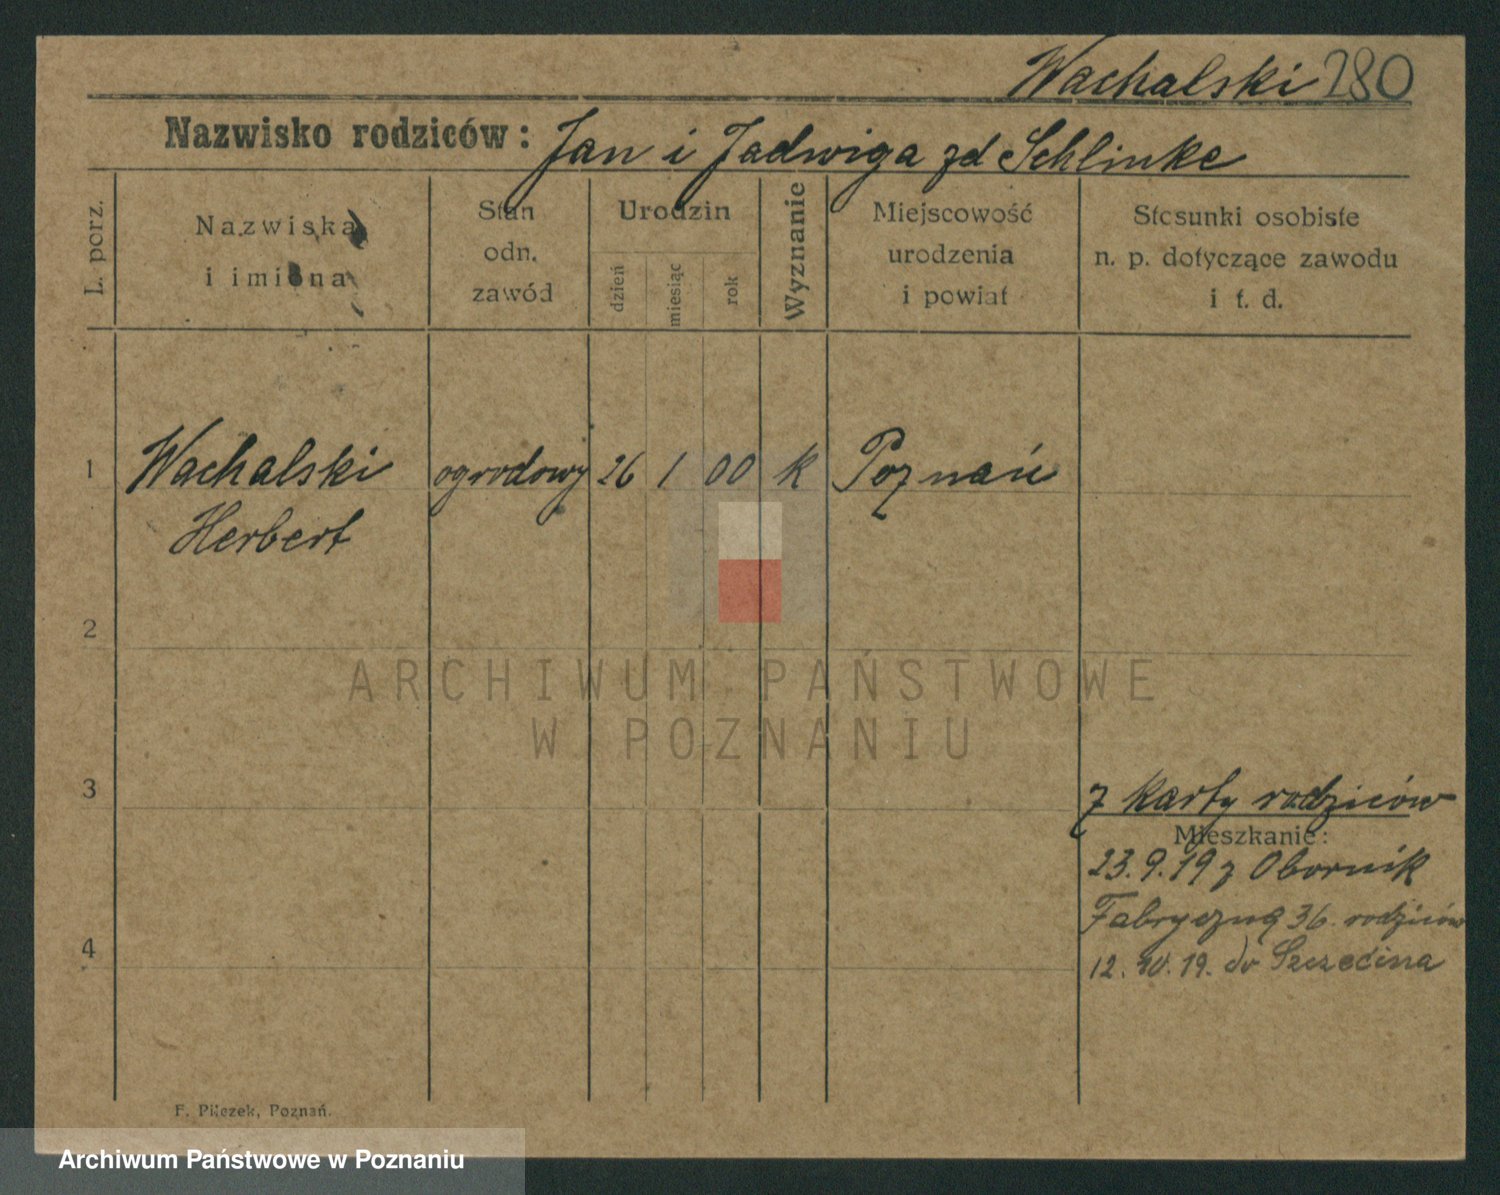 Wachalski 280
Nazwisko rodziców: Jan i Jadwiga zd Schlinke
L. porz.
Nazwiska
i imiona
Stan
odn.
zawód
Urodzin
dzień
miesiąc
rok
Wyznanie
Miejscowość
urodzenia
i powiat
Stosunki osobiste
n. p. dotyczące zawodu
i t. d.
1 Wachalski ogrodowy 26 1 00 k Poznań
Herbert
2
ARCHIWUM PAŃSTWOWE
W POZNANIU
3
z karty rodziców
Mieszkanie:
23.9.19 z Obornik
Fabryczną 36. rodziców
4
12. 10. 19. do Szczecina
F. Pilczek, Poznań.
Archiwum Państwowe w Poznaniu